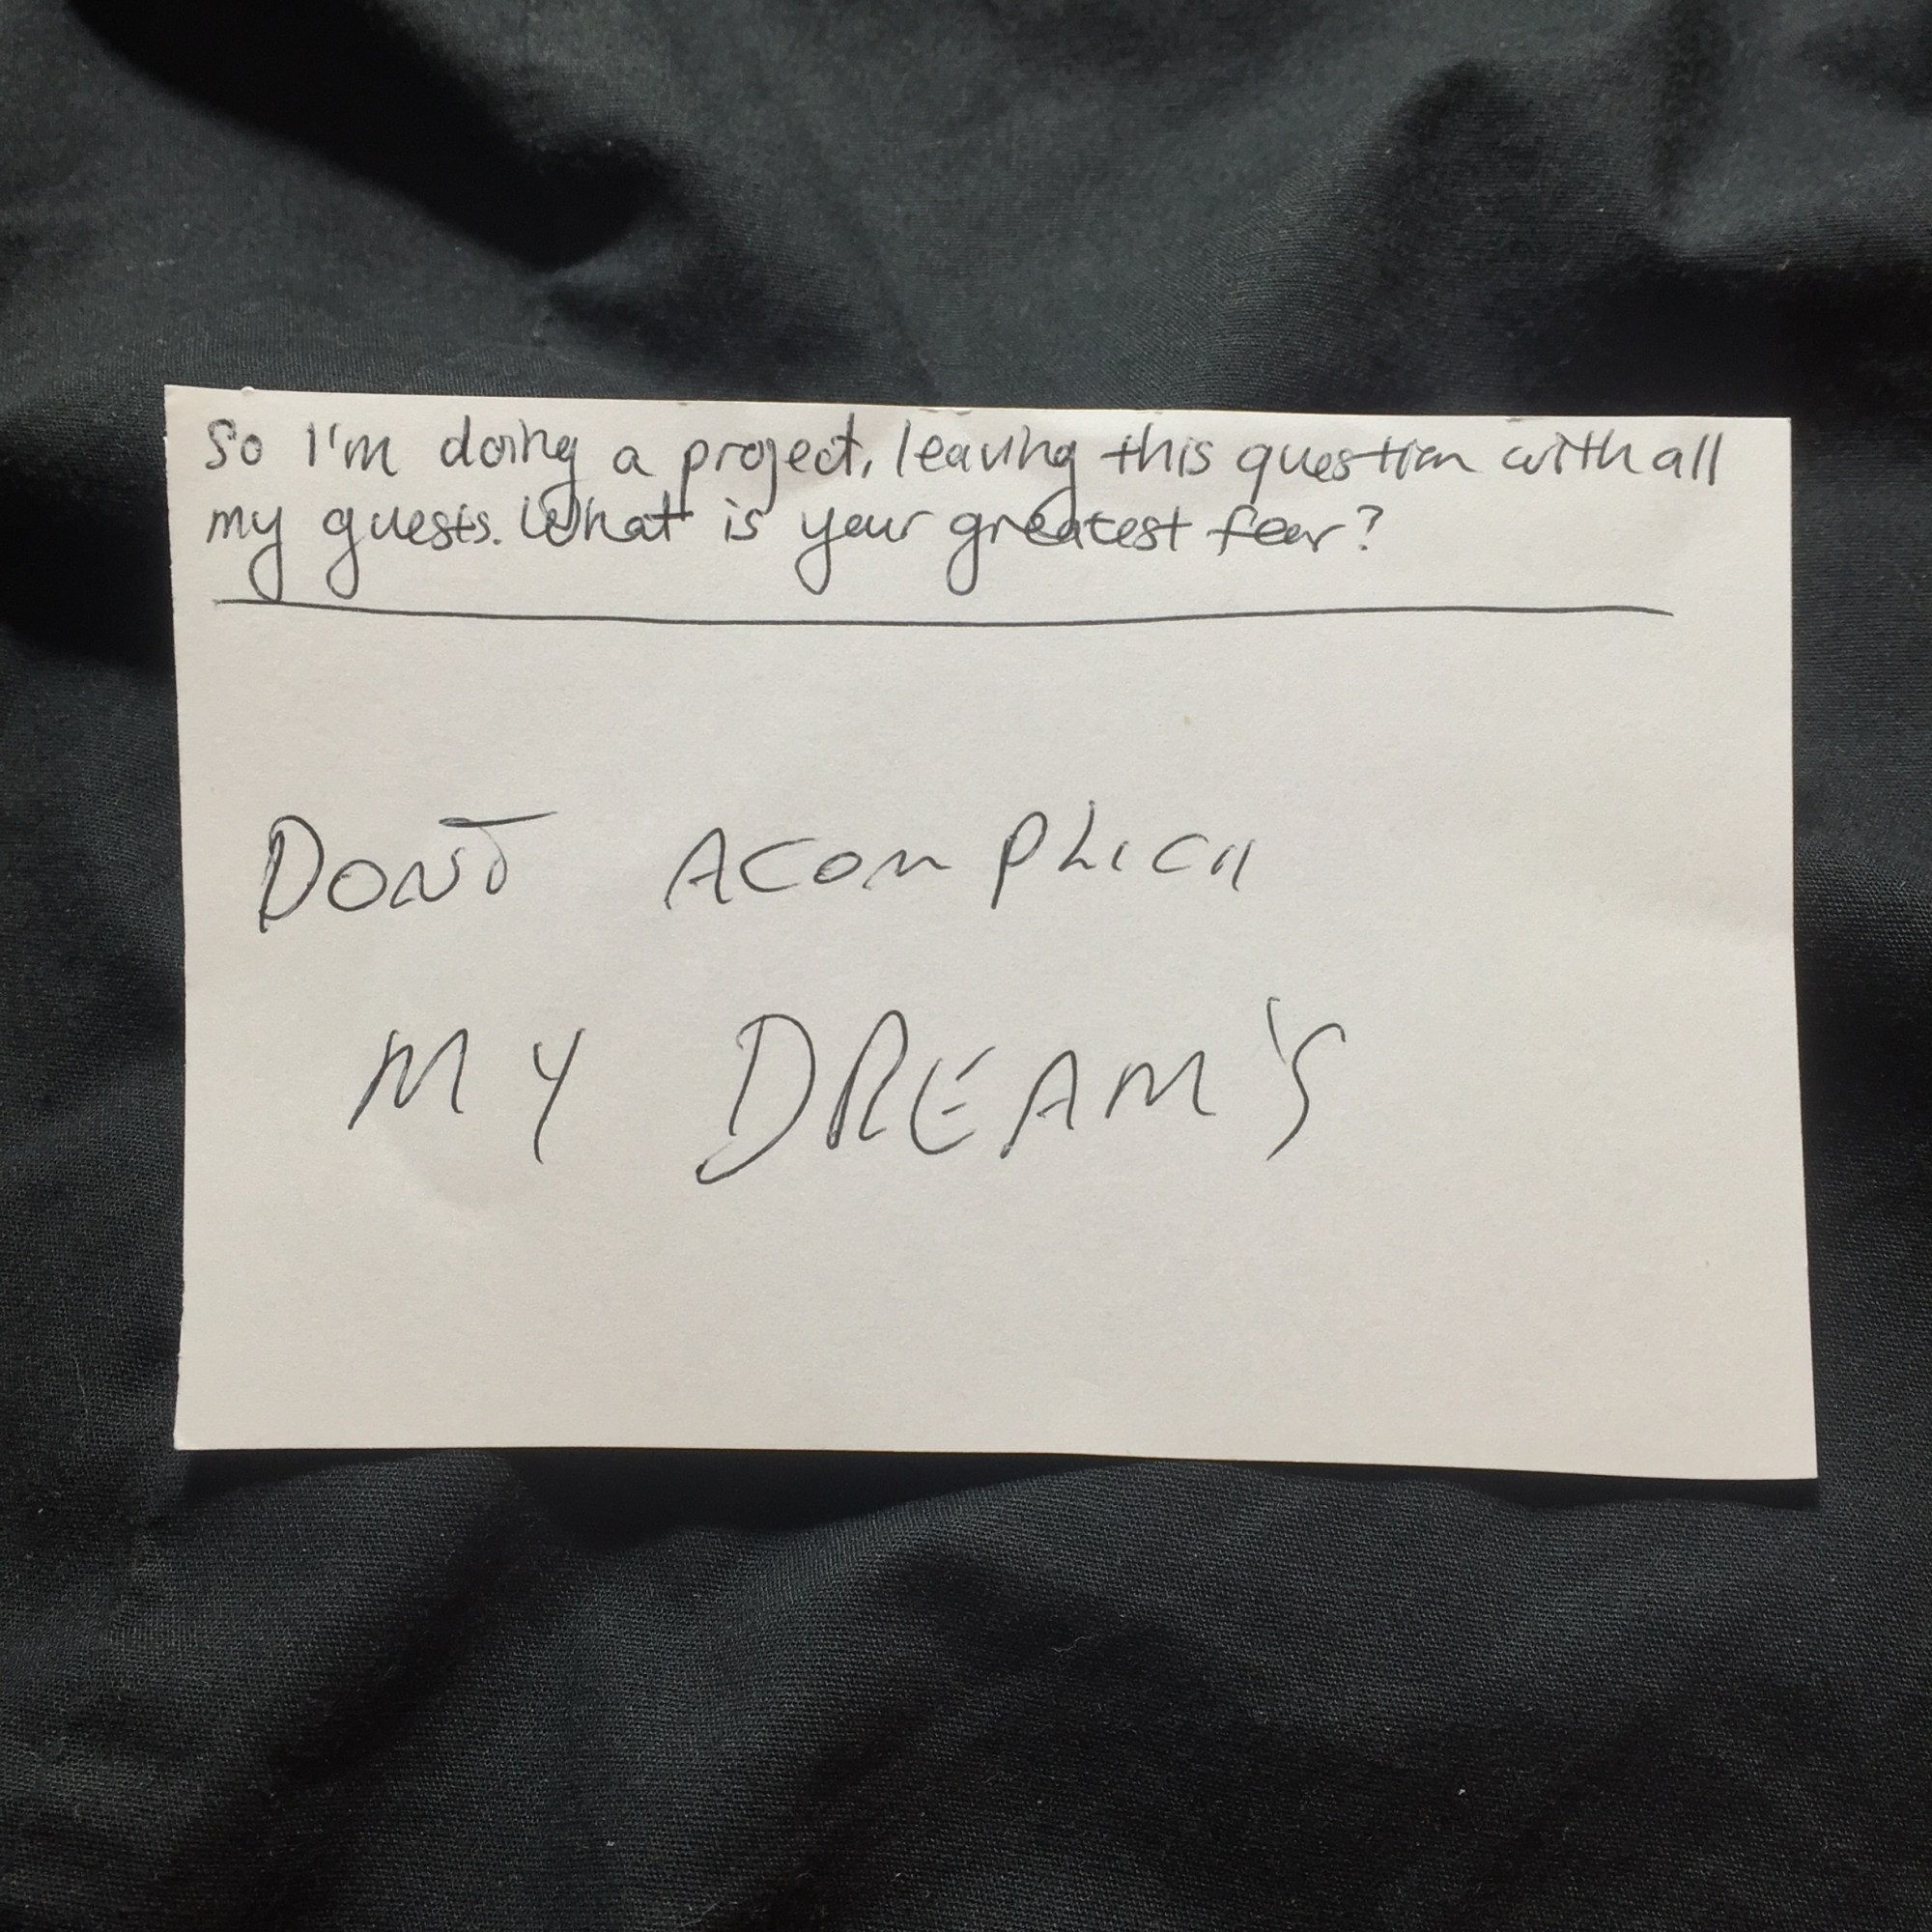 So I'm doing a project, leaving this question with all
my guests. What is your greatest fear?
DONT ACOMPLICH
MY DREAM'S